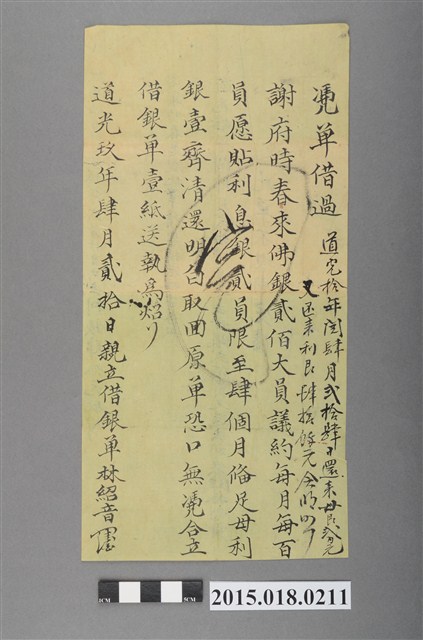 凴单借過
道光拾年閏肆月弍拾肆日還来母艮
又还来利艮肆拾餘元
謝府時春來佛銀貳佰大員議約每月每百
員愿貼利息銀貳員限至肆個月偹足母利
銀壹齊清還明白取囬原单恐口無凴合立
借銀单壹紙送執為炤
道光玖年肆月貳拾日親立借銀单林紹音
CM
5CM
2015.018.0211